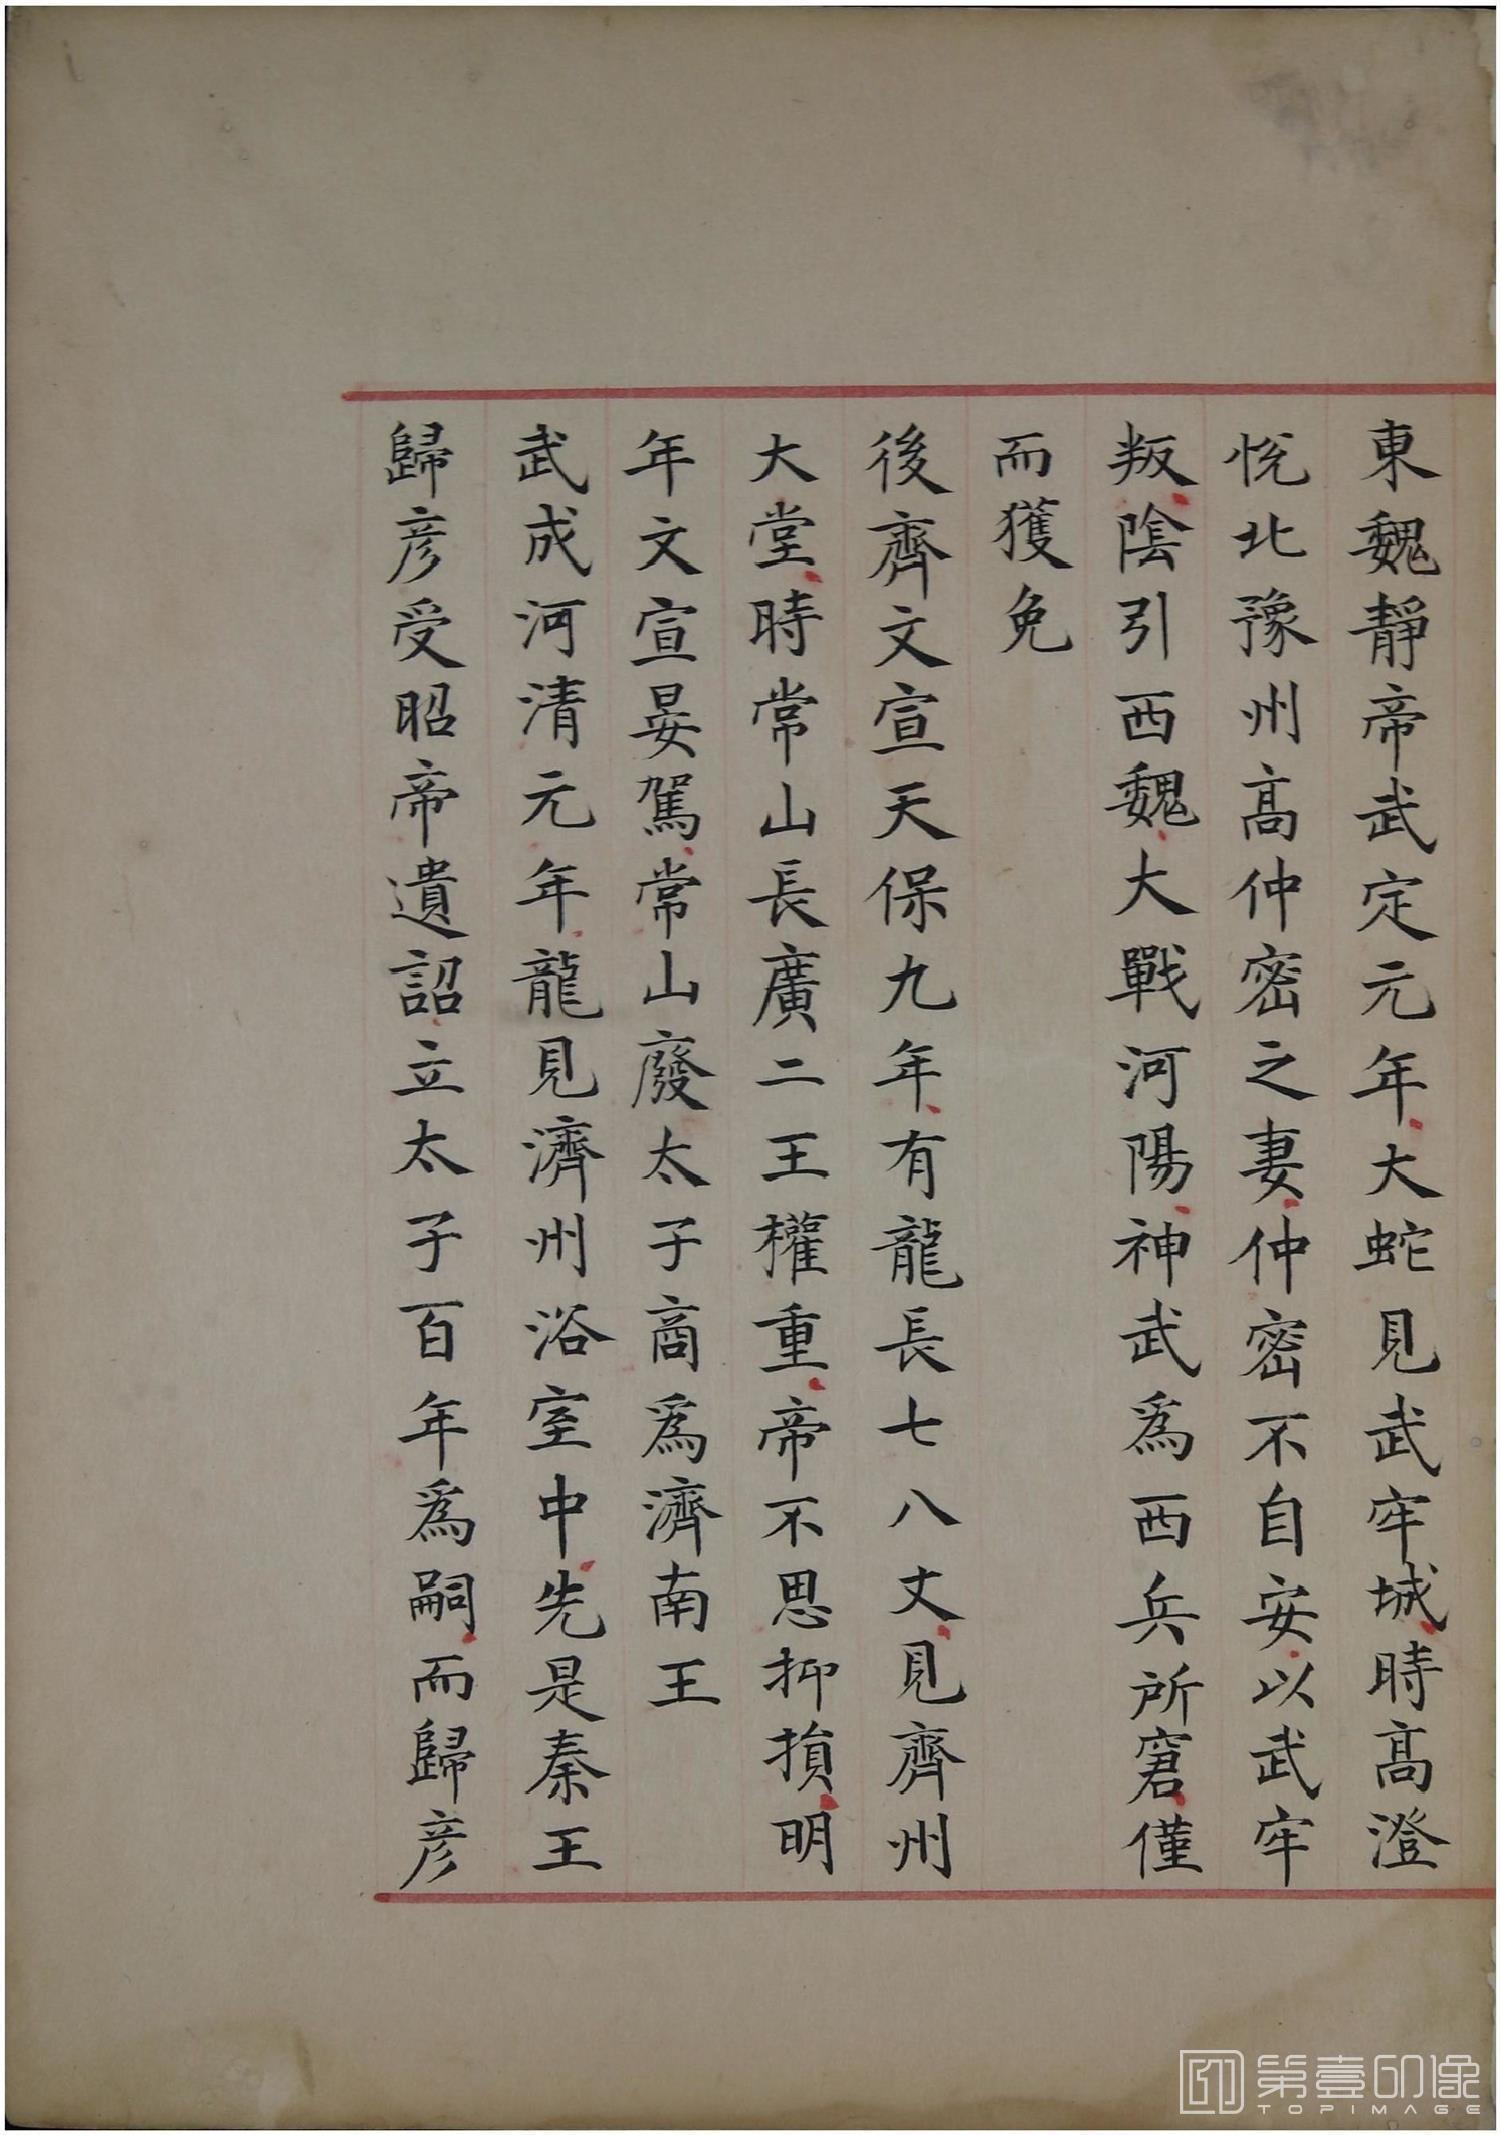 東魏靜帝武定元年大蛇見武牢城時高澄
悅北豫州高仲密之妻仲密不自安以武牢
叛陰引西魏大戰河陽神武為西兵所窘僅
而獲免
後齊文宣天保九年有龍長七八丈見齊州
大堂時常山長廣二王權重帝不思抑損明
年文宣晏駕常山廢太子商為濟南王
武成河清元年龍見濟州浴室中先是秦王
歸彥受昭帝遺詔立太子百年為嗣而歸彥
第壹印像
TOPIMAGE